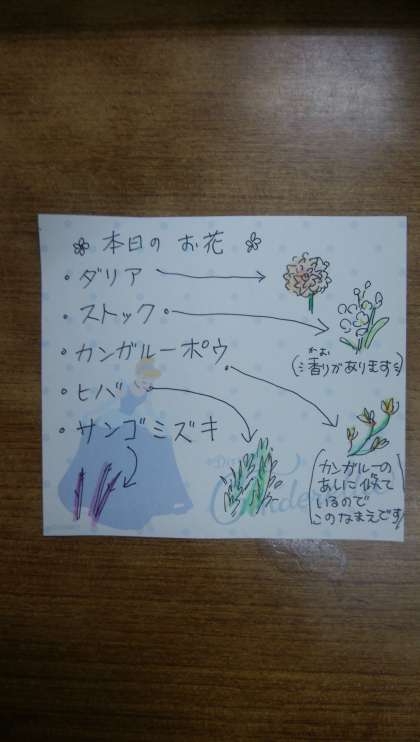 ❀ 本日の お花 ❀
・ダリア
・ストック
・カンガルーポウ
・ヒバ
・サンゴミズキ
かお
(香りがあります)
カンガルーの
あしに似て
いるので
このなまえです